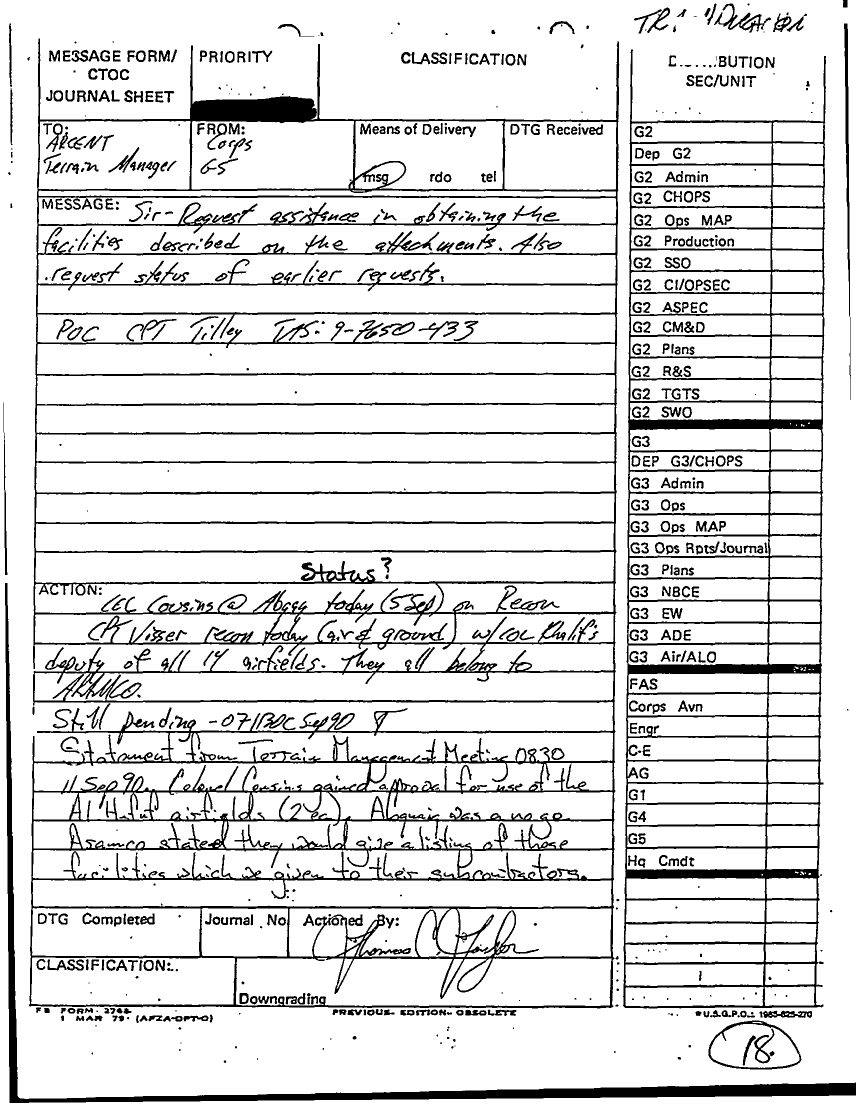 MESSAGE FORM/
CTOC
JOURNAL SHEET
PRIORITY
CLASSIFICATION
TO:
ARCENT
Terrain Manager
FROM:
Corps
G-5
Means of Delivery
msg rdo tel
DTG Received
MESSAGE: Sir - Request assistance in obtaining the
facilities described on the attachments. Also
request status of earlier requests.
POC CPT Tilley TAS: 9-7650-433
Status?
ACTION:
Cousins @ Abqaq today (5 Sep) on Recon
CPT Visser recon today (air & ground) w/COL Khalif's
deputy of all 14 airfields. They all belong to
ARAMCO.
Still pending - 071130C Sep 90
Statament from Terrain Management Meeting 0830
11 Sep 90. Colonel Cousins gained approval for use of the
Al Hufuf airfields (2 ea). Abquaiq was a no go.
Aramco stated they would give a listing of those
facilities which we given to their subcontractors.
DTG Completed
Journal No
Actioned By:
Thomas C. Taylor
CLASSIFICATION:
Downgrading
FB FORM 2768
1 MAR 79 (AFZA-DPT-O)
PREVIOUS EDITION OBSOLETE
BUTION
SEC/UNIT
G2
Dep G2
G2 Admin
G2 CHOPS
G2 Ops MAP
G2 Production
G2 SSO
G2 CI/OPSEC
G2 ASPEC
G2 CM&D
G2 Plans
G2 R&S
G2 TGTS
G2 SWO
G3
DEP G3/CHOPS
G3 Admin
G3 Ops
G3 Ops MAP
G3 Ops Rpts/Journal
G3 Plans
G3 NBCE
G3 EW
G3 ADE
G3 Air/ALO
FAS
Corps Avn
Engr
C-E
AG
G1
G4
G5
Hq Cmdt
U.S.G.P.O.: 1985-625-270
18